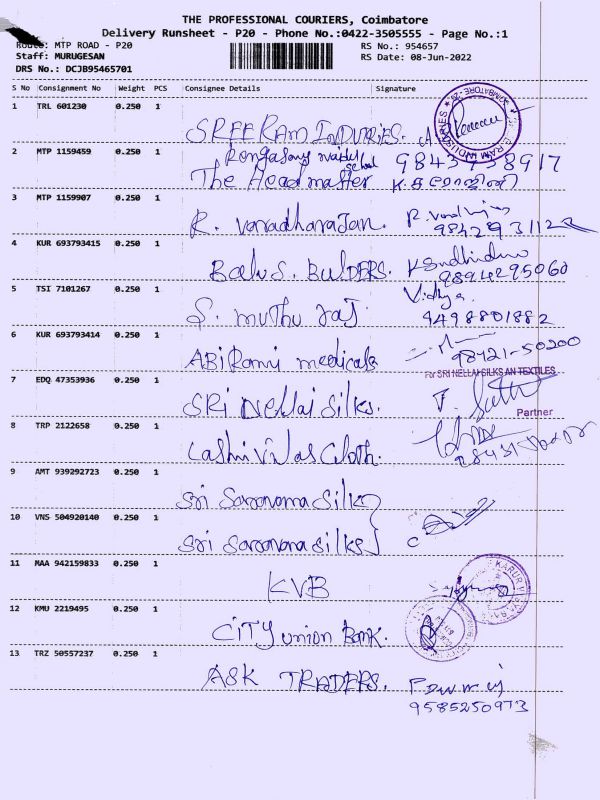 THE PROFESSIONAL COURIERS, Coimbatore
Delivery Runsheet - P20 - Phone No.:0422-3505555 - Page No.:1
Route: MTP ROAD - P20
RS No.: 954657
Staff: MURUGESAN
RS Date: 08-Jun-2022
DRS No.: DCJB95465701
S No Consignment No Weight PCS Consignee Details Signature
1 TRL 601230 0.250 1
SREE RAM INDURIES.
2 MTP 1159459 0.250 1
984
The Head master
3 MTP 1159907 0.250 1
R. Varadharajan.
4 KUR 693793415 0.250 1
Balu S. BuLDERS.
9894295060
5 TSI 7101267 0.250 1
Vidhya
S. muthu raj.
9498801882
6 KUR 693793414 0.250 1
98421-50200
ABi Rami medicals
For SRI NELLAI SILKS AN TEXTILES
7 EDQ 47353936 0.250 1
SRi Nellai Silks.
Partner
8 TRP 2122658 0.250 1
Lashmi Vilas Cloth.
9 AMT 939292723 0.250 1
Sri Saravana Silk
10 VNS 504920140 0.250 1
Sri Saravana Silks
11 MAA 942159833 0.250 1
KVB
12 KMU 2219495 0.250 1
CITY union Bank.
13 TRZ 50557237 0.250 1
ASK TRADERS.
9585250973